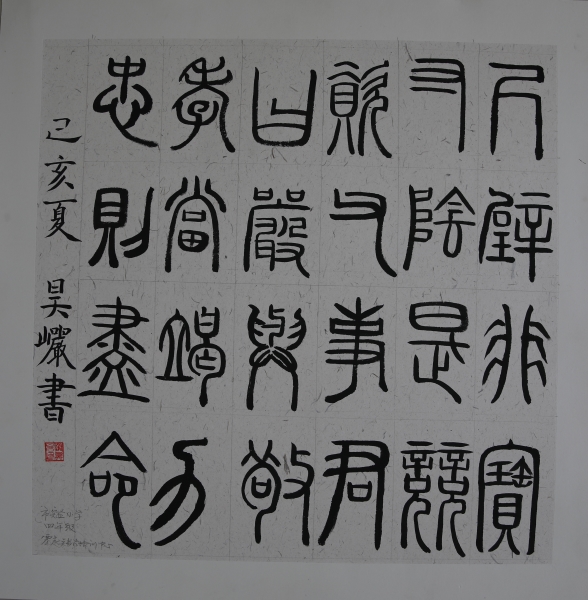 尺璧非寶
寸陰是競
資父事君
曰嚴與敬
孝當竭力
忠則盡命
己亥夏 昊巗書